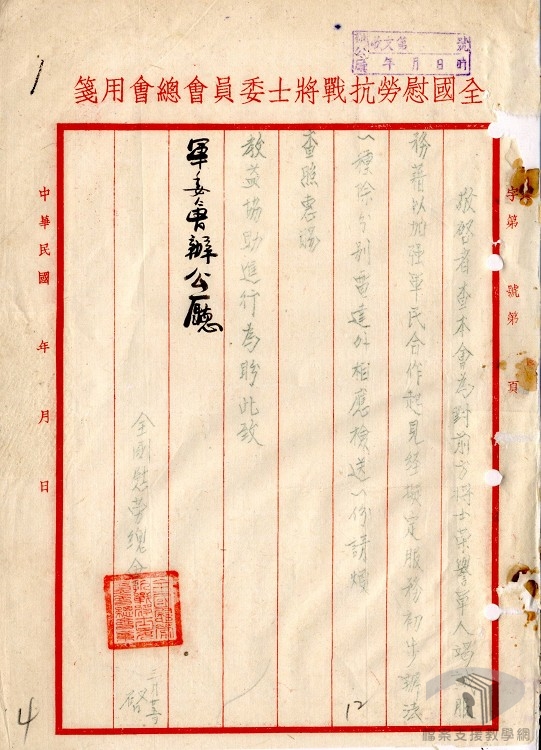 全國慰勞抗戰將士委員會總會用箋
字第 號第 頁
敬啓者查本會為對前方將士榮譽軍人竭 服
務藉以加强軍民合作起見經擬定服務初步辦法
一種除分別 達外相應檢送一份請煩
查照惠賜
教益協助進行為盼此致
軍委會辦公廳
全國慰勞總會
啓
中華民國 年 月 日
1
4
12
檔案支援教學網